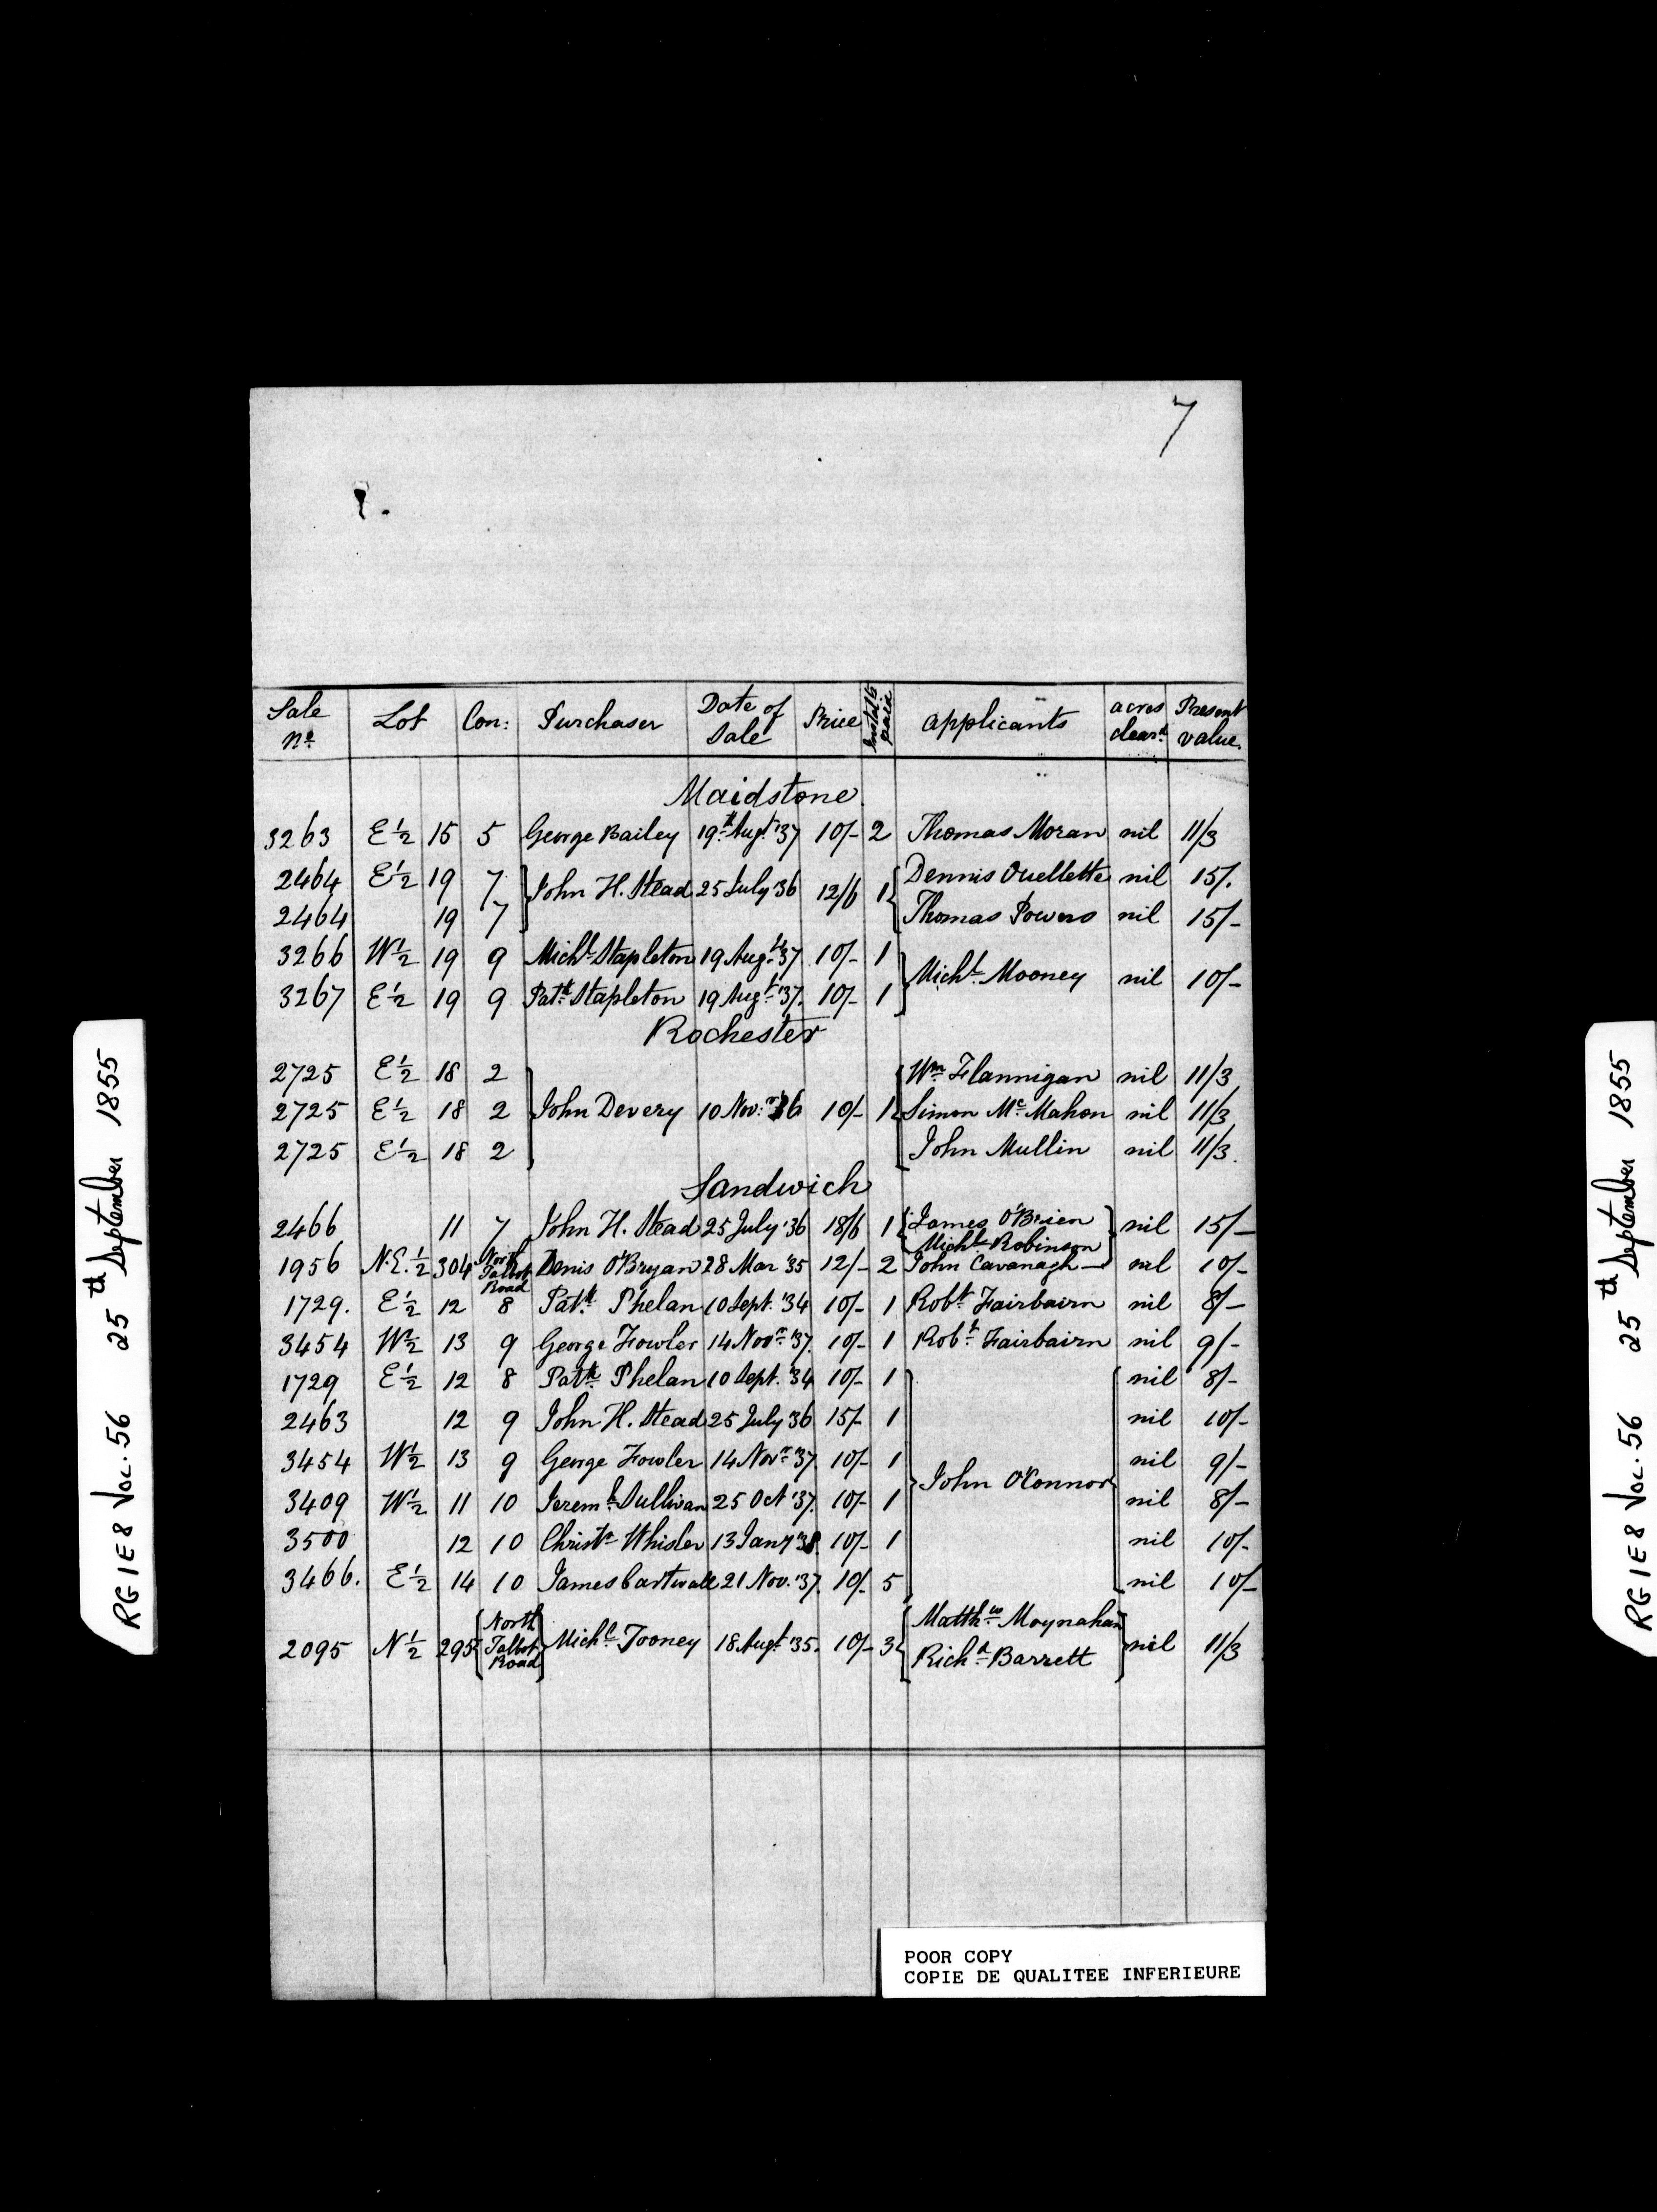 7
Sale No. Lot Con: Purchaser Date of Sale Price Instalts paid applicants acres clear.d Present value.
Maidstone
3263 E 1/2 15 5 George Bailey 19th Augt '37 10/- 2 Thomas Moran nil 11/3
2464 E 1/2 19 7 John H. Stead 25 July '36 12/6 1 Dennis Ouellette nil 15/.
2464 19 7 Thomas Powers nil 15/-
3266 W 1/2 19 9 Michl Stapleton 19 Augt '37 10/- 1 Michl Mooney nil 10/-
3267 E 1/2 19 9 Patk Stapleton 19 Augt '37. 10/- 1
Rochester
2725 E 1/2 18 2 Wm Flannigan nil 11/3
2725 E 1/2 18 2 John Devery 10 Nov:r '36 10/- 1 Simon Mc Mahon nil 11/3
2725 E 1/2 18 2 John Mullin nil 11/3.
Sandwich
2466 11 7 John H. Stead 25 July '36 18/6 1 James O'Brien nil 15/-
Michl Robinson
1956 N.E. 1/2 304 North Talbot Road Denis O'Bryan 28 Mar '35 12/- 2 John Cavanagh nil 10/-
1729. E 1/2 12 8 Patk Phelan 10 Sept. '34 10/- 1 Robt Fairbairn nil 8/-
3454 W 1/2 13 9 George Fowler 14 Novr '37. 10/- 1 Robt Fairbairn nil 9/-
1729 E 1/2 12 8 Patk Phelan 10 Sept. '34 10/- 1 nil 8/-
2463 12 9 John H. Stead 25 July '36 15/- 1 nil 10/-
3454 W 1/2 13 9 George Fowler 14 Novr '37. 10/- 1 nil 9/-
John O'Connor
3409 W 1/2 11 10 Jeremh Sullivan 25 Oct '37. 10/- 1 nil 8/-
3500 12 10 Christr Whisler 13 Jany '38. 10/- 1 nil 10/-
3466. E 1/2 14 10 James Cartwall 21 Nov. '37. 10/- 5 nil 10/-
2095 N 1/2 295 North Talbot Road Michl Tooney 18 Augt '35. 10/- 3 Matthw Moynahan nil 11/3
Richd Barrett
POOR COPY
COPIE DE QUALITEE INFERIEURE
RG 1 E 8 Vol. 56 25th September 1855
RG 1 E 8 Vol. 56 25th September 1855